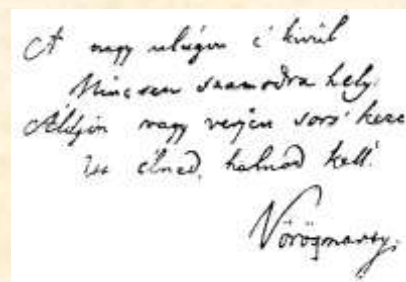 A nagy világon e' kivül
Nincsen számodra hely;
Áldjon vagy verjen sors' keze
Itt élned, halnod kell.
Vörösmarty.